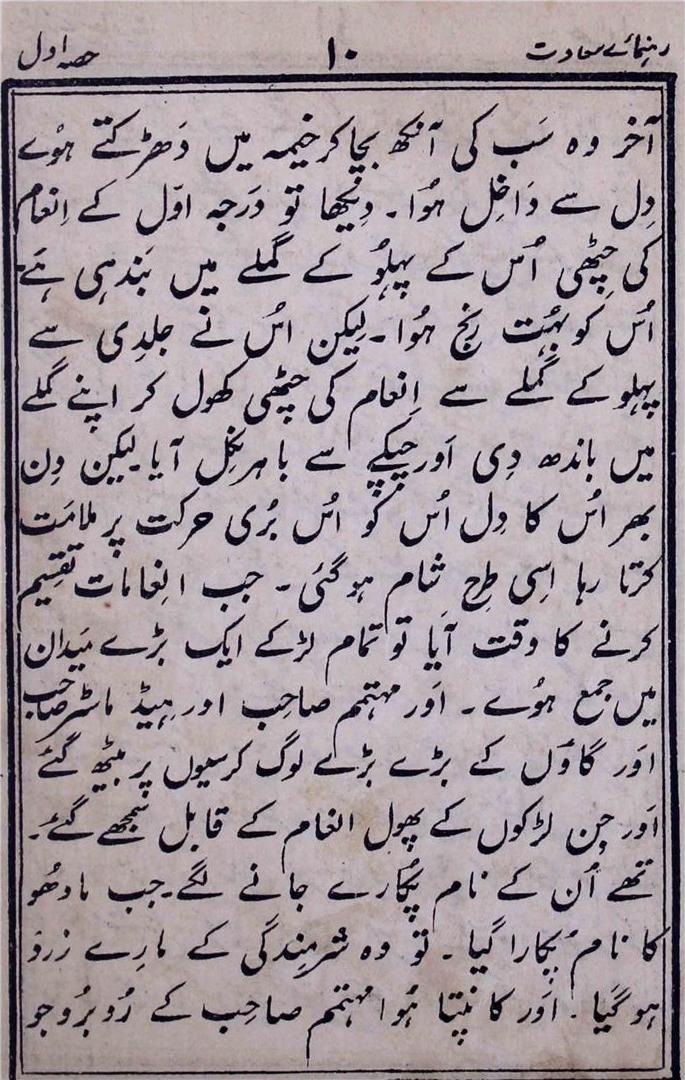 رہنمائے سعادت ۱۰ حصہ اول
آخر وہ سَب کی آنکھ بچا کر خیمہ میں دَھڑکتے ہوُے
دِل سے دَاخِل ہوُا۔ دِیکھا تو دَرجہ اوّل کے اِنعام
کی چِٹھی اُس کے پہلوُ کے گملے میں بَندہی ہَے۔
اُس کو بہُت رنج ہوُا۔ لیکن اسُ نے جلدِی سے
پہلو کے گملے سے اِنعام کی چِٹھی کھول کر اپنے گملے
میں باندھ دِی اَور چپکے سے باہر نِکل آیا۔ لیکن دِن
بھر اسُ کا دِل اُس کو اُس بُری حرکت پر ملامَت
کرَتا رہا اِسِی طرِح شام ہو گئی۔ جب انعامات تقسِیم
کرنے کا وقت آیا تو تمام لڑکے ایک بڑے مَیدان
میں جمع ہوُے۔ اَور مہتمم صاحِب اور ہیڈ ماسٹر صاحِب
اَور گاؤں کے بڑے بڑے لوگ کرسیوں پر بیٹھ گئے
اَور جِن لڑکوں کے پھول انعام کے قابل سمجھے گئے۔
تھے اُن کے نام پکُارے جانے لگے۔ جب مادھُو
کا نام پکارا گیا۔ تو وہ شرمِندگی کے مارے زردَ
ہو گیَا۔ اَور کانپتا ہُوا مہتمم صاحِب کے روُبرُو جو